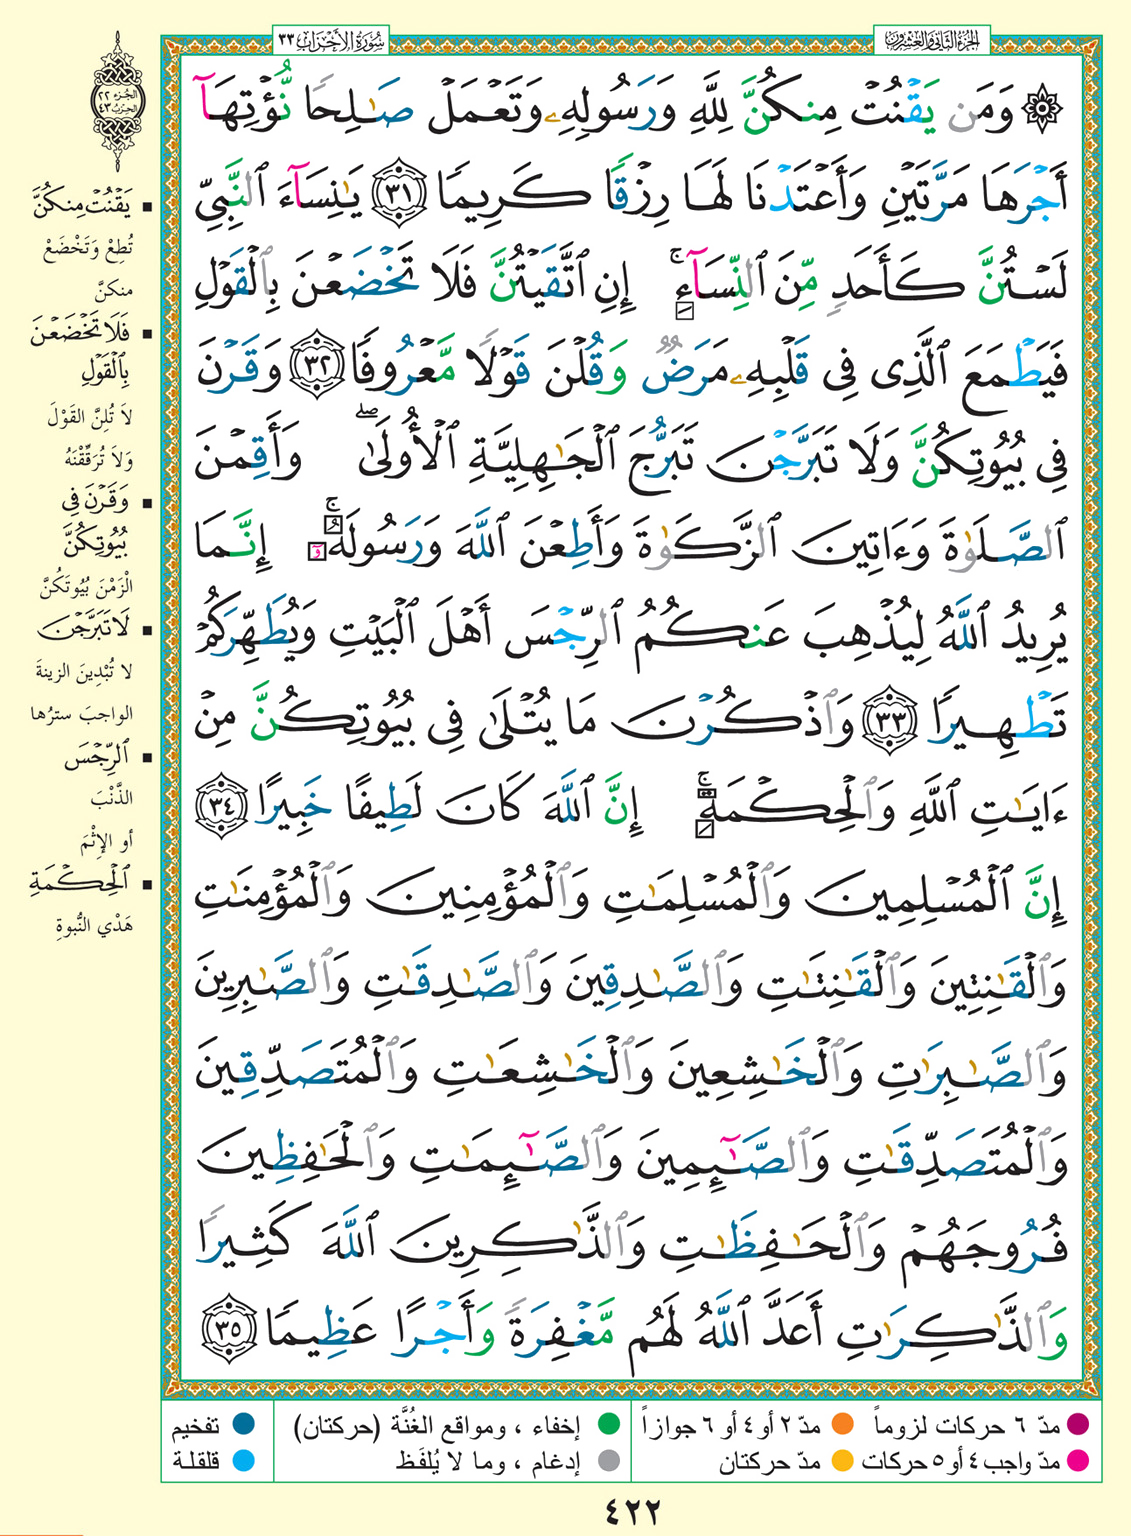 الجزء الثاني والعشرون
سورة الأحزاب ٣٣
۞ وَمَن يَقْنُتْ مِنكُنَّ لِلَّهِ وَرَسُولِهِۦ وَتَعْمَلْ صَٰلِحًا نُّؤْتِهَآ
أَجْرَهَا مَرَّتَيْنِ وَأَعْتَدْنَا لَهَا رِزْقًا كَرِيمًا ٣١ يَٰنِسَآءَ ٱلنَّبِىِّ
لَسْتُنَّ كَأَحَدٍ مِّنَ ٱلنِّسَآءِ ۚ إِنِ ٱتَّقَيْتُنَّ فَلَا تَخْضَعْنَ بِٱلْقَوْلِ
فَيَطْمَعَ ٱلَّذِى فِى قَلْبِهِۦ مَرَضٌ وَقُلْنَ قَوْلًا مَّعْرُوفًا ٣٢ وَقَرْنَ
فِى بُيُوتِكُنَّ وَلَا تَبَرَّجْنَ تَبَرُّجَ ٱلْجَٰهِلِيَّةِ ٱلْأُولَىٰ ۖ وَأَقِمْنَ
ٱلصَّلَوٰةَ وَءَاتِينَ ٱلزَّكَوٰةَ وَأَطِعْنَ ٱللَّهَ وَرَسُولَهُۥٓ ۚ إِنَّمَا
يُرِيدُ ٱللَّهُ لِيُذْهِبَ عَنكُمُ ٱلرِّجْسَ أَهْلَ ٱلْبَيْتِ وَيُطَهِّرَكُمْ
تَطْهِيرًا ٣٣ وَٱذْكُرْنَ مَا يُتْلَىٰ فِى بُيُوتِكُنَّ مِنْ
ءَايَٰتِ ٱللَّهِ وَٱلْحِكْمَةِ ۚ إِنَّ ٱللَّهَ كَانَ لَطِيفًا خَبِيرًا ٣٤
إِنَّ ٱلْمُسْلِمِينَ وَٱلْمُسْلِمَٰتِ وَٱلْمُؤْمِنِينَ وَٱلْمُؤْمِنَٰتِ
وَٱلْقَٰنِتِينَ وَٱلْقَٰنِتَٰتِ وَٱلصَّٰدِقِينَ وَٱلصَّٰدِقَٰتِ وَٱلصَّٰبِرِينَ
وَٱلصَّٰبِرَٰتِ وَٱلْخَٰشِعِينَ وَٱلْخَٰشِعَٰتِ وَٱلْمُتَصَدِّقِينَ
وَٱلْمُتَصَدِّقَٰتِ وَٱلصَّٰٓئِمِينَ وَٱلصَّٰٓئِمَٰتِ وَٱلْحَٰفِظِينَ
فُرُوجَهُمْ وَٱلْحَٰفِظَٰتِ وَٱلذَّٰكِرِينَ ٱللَّهَ كَثِيرًا
وَٱلذَّٰكِرَٰتِ أَعَدَّ ٱللَّهُ لَهُم مَّغْفِرَةً وَأَجْرًا عَظِيمًا ٣٥
الجزء ٢٢
الحزب ٤٣
▪ يَقْنُتْ مِنكُنَّ
تُطِعْ وَتَخْضَعْ
منكنَّ
▪ فَلَا تَخْضَعْنَ
بِٱلْقَوْلِ
لَا تُلِنَّ القَوْلَ
وَلَا تُرَقِّقْنَهُ
▪ وَقَرْنَ فِى
بُيُوتِكُنَّ
الْزَمْنَ بُيُوتَكُنَّ
▪ لَا تَبَرَّجْنَ
لا تُبْدِينَ الزينةَ
الواجبَ سترُها
▪ ٱلرِّجْسَ
الذَّنْبَ
أو الإثْمَ
▪ ٱلْحِكْمَةِ
هَدْيِ النُّبوةِ
مدّ ٦ حركات لزوماً
مدّ ٢ أو ٤ أو ٦ جوازاً
إخفاء ، ومواقع الغُنَّة (حركتان)
تفخيم
مدّ واجب ٤ أو ٥ حركات
مدّ حركتان
إدغام ، وما لا يُلفَظ
قلقلة
٤٢٢